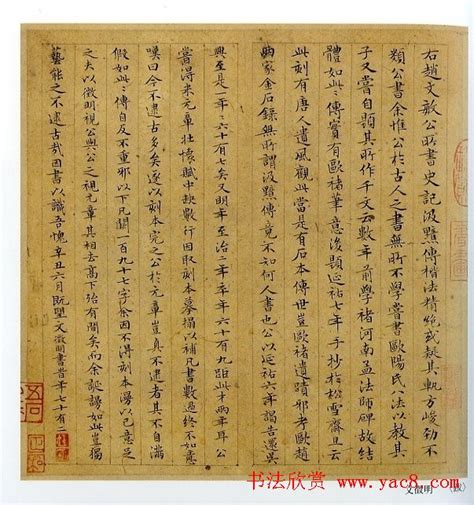 右趙文敏公所書史記汲黯傳楷法精絕或疑其軌方峻勁不
類公書余惟公於古人之書無所不學嘗書歐陽氏八法以教其
子又嘗自題其所作千文云數年前學褚河南孟法師碑故結
體如此〻傳實有歐褚筆意後題延祐七年手抄於松雪齋且云
此刻有唐人遺風觀此當是有石本傳世豈歐褚遺蹟邪考歐趙
兩家金石錄無所謂汲黯傳竟不知何人書也公以延祐六年謁告還吳
興至是一年〻六十有七矣又明年至治二年卒年六十有九距此才兩年耳公
嘗得米元章壯懷賦中缺數行因取刻本摹搨以數過終不如意
嘆曰今不逮古多矣遂以刻本完之公於元章豈真不逮者其不自滿
假如此〻傳自反不重邪以下凡闕一百九十七字余因不得刻本漫以己意足
之夫以徵明視公與公之視元章其相去高下殆有間矣而余誕謾如此豈獨
藝能之不逮古哉因書以識吾愧辛丑六月既望文徵明書當年七十有二
文徵明
书法欣赏 www.yac8.com